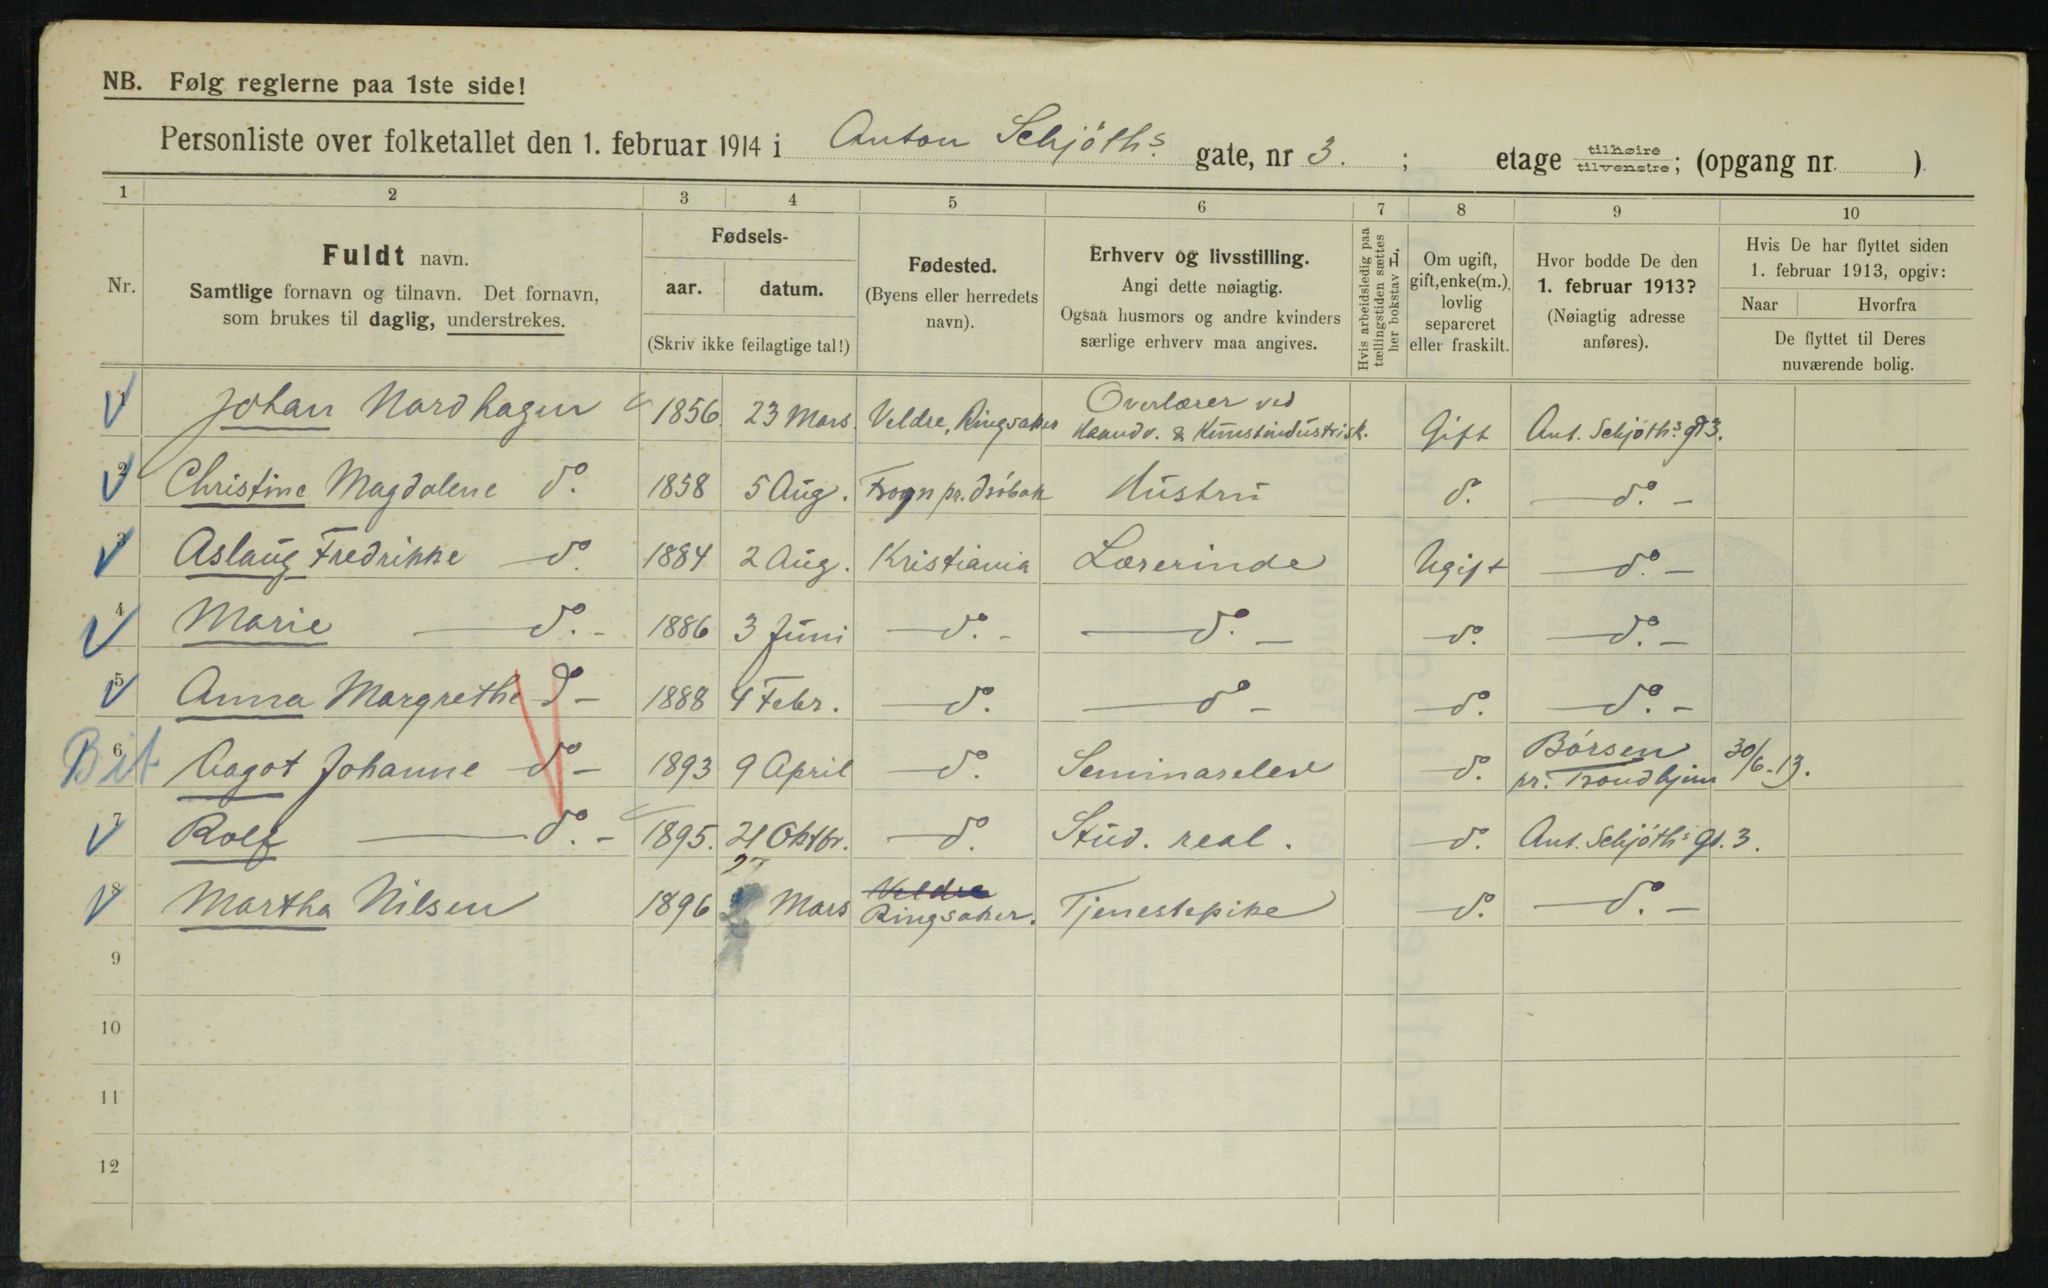 NB. Følg reglerne paa 1ste side!
Personliste over folketallet den 1. februar 1914 i Anton Schjøths gate, nr 3. ; etage tilhøire tilvenstre; (opgang nr. )
1 2 3 4 5 6 7 8 9 10
Nr.
Fuldt navn.
Samtlige fornavn og tilnavn. Det fornavn,
som brukes til daglig, understrekes.
Fødsels-
aar. datum.
(Skriv ikke feilagtige tal!)
Fødested.
(Byens eller herredets
navn).
Erhverv og livsstilling.
Angi dette nøiagtig.
Ogsaa husmors og andre kvinders
særlige erhverv maa angives.
Hvis arbeidsledig paa
tællingstiden sættes
her bokstav L.
Om ugift,
gift, enke(m.),
lovlig
separeret
eller fraskilt.
Hvor bodde De den
1. februar 1913?
(Nøiagtig adresse
anføres).
Hvis De har flyttet siden
1. februar 1913, opgiv:
Naar Hvorfra
De flyttet til Deres
nuværende bolig.
1 Johan Nordhagen 1856. 23 Mars. Veldre, Ringsaker Overlærer ved Haandv. & Kunstindustrisk. Gift Ant. Schjøths gt 3.
2 Christine Magdalene do. 1858 5 Aug. Frogn pr. Drøbak Hustru do. — do. —
3 Aslaug Fredrikke — do. 1884 2 Aug. Kristiania Lærerinde Ugift — do. —
4 Marie — do. — 1886 3 Juni — do. — — do. — do. — do. —
5 Anna Margrethe do — 1888 4 Febr. — do. — do — do. — do. —
Bit 6 Aagot Johanne — do — 1893 9 April — do. Seminarelev do. Børsen pr. Trondhjem 30/6-13.
7 Rolf — do. — 1895. 21 Oktbr. — do. Stud. real. do. Ant. Schjøths gt. 3.
8 Martha Nilsen 1896 27 Mars Veldre Ringsaker. Tjenestepike do. — do. —
9
10
11
12